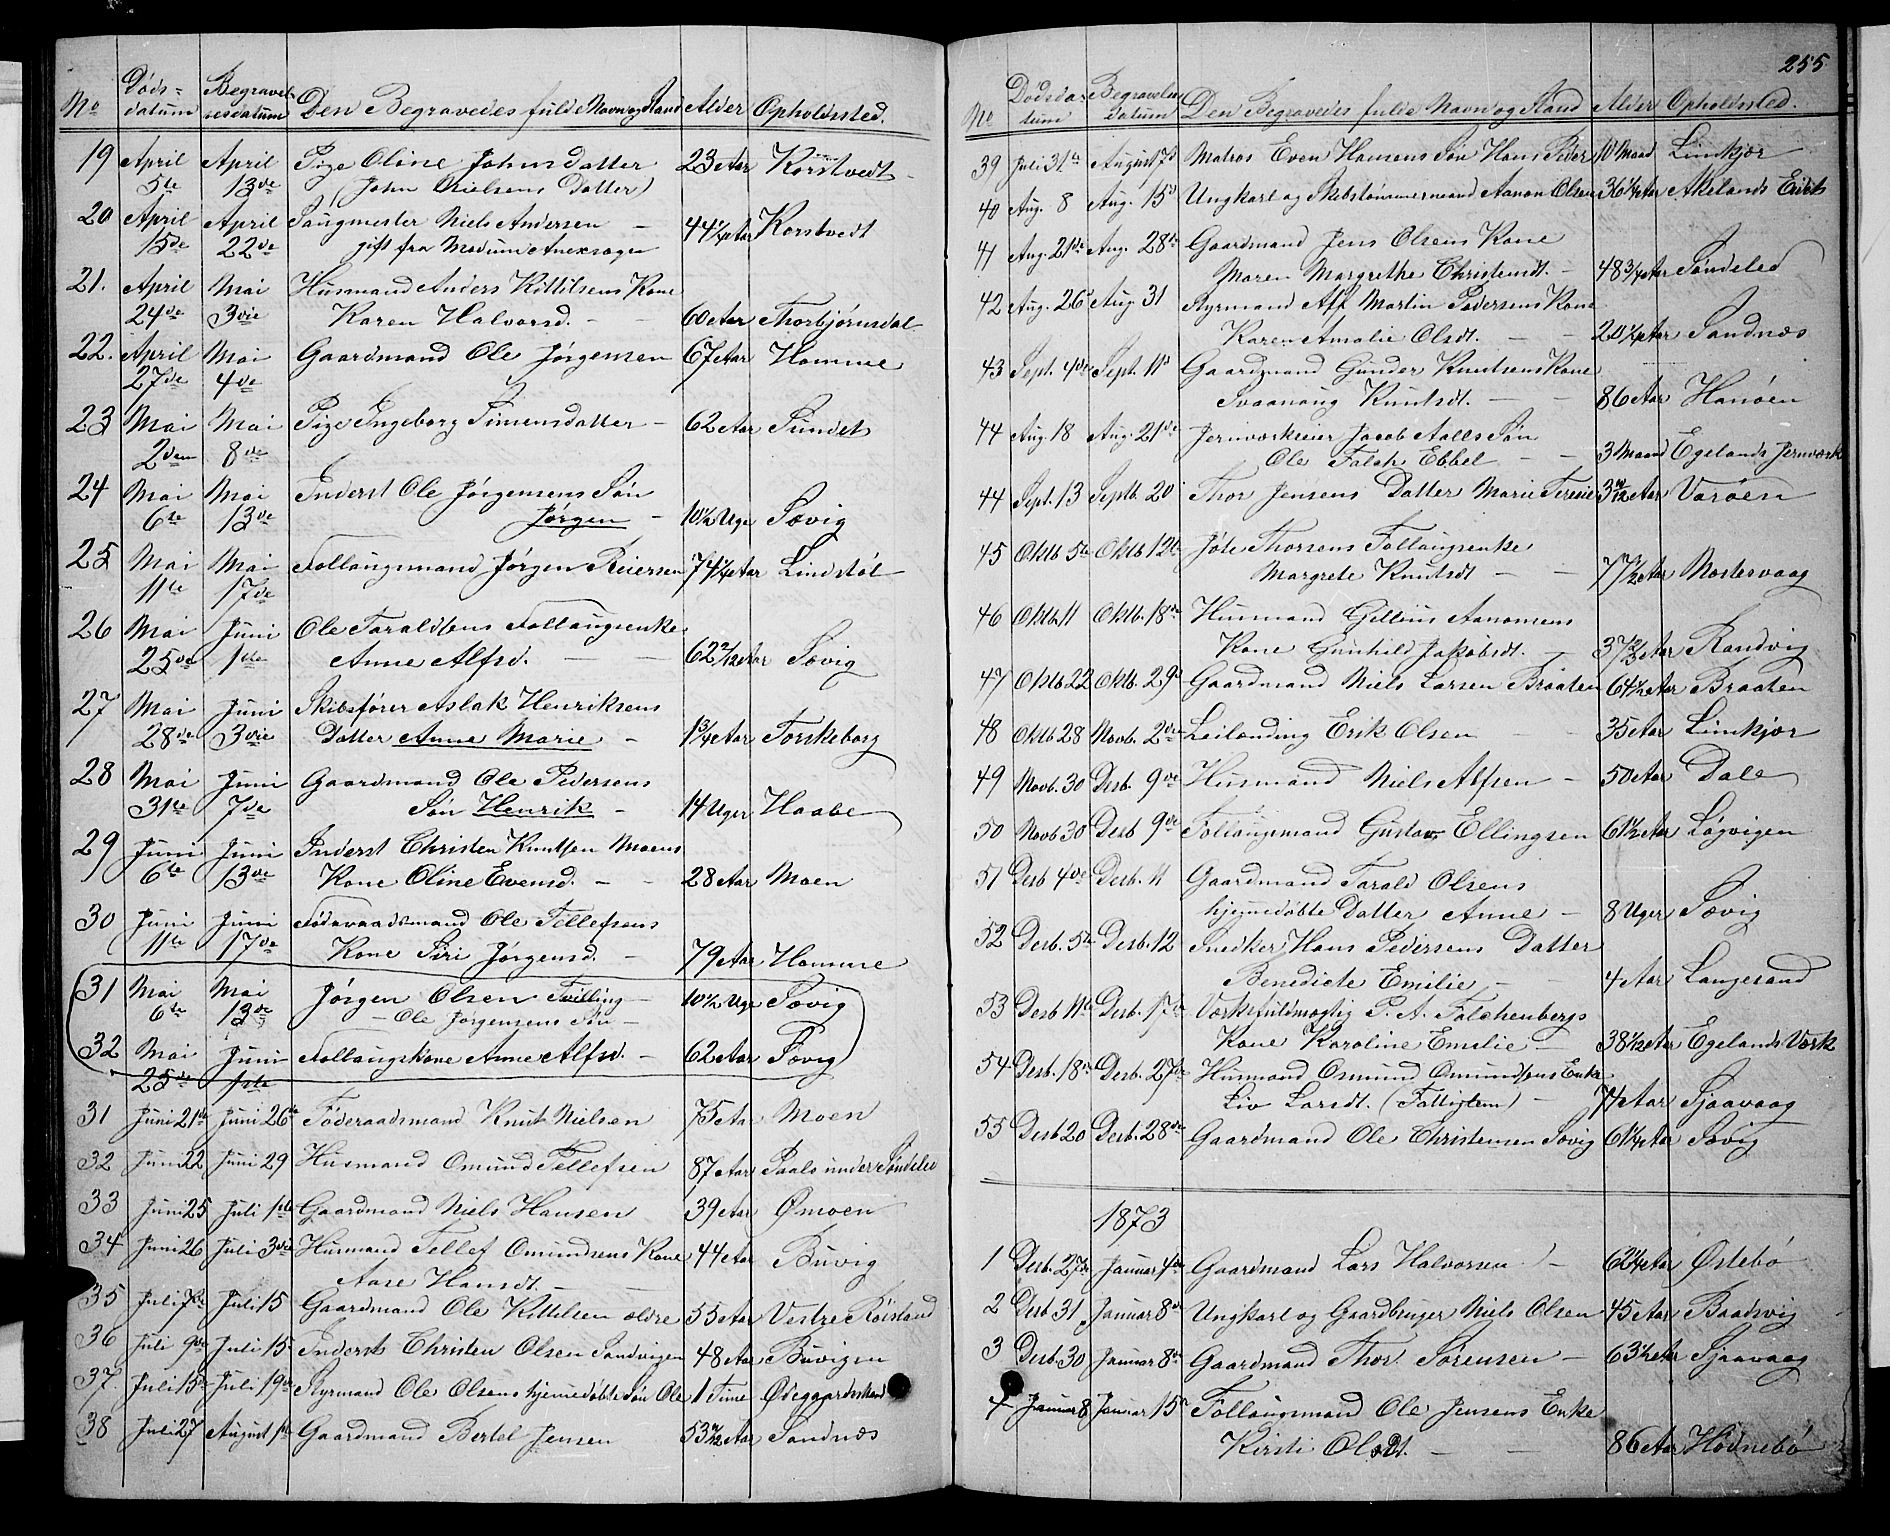 No Døds- Begravel- Den Begravedes fulde Navn og Stand Alder Opholdssted.
datum sesdatum
19 April April Pige Oline Johnsdatter 23 Aar Korstvedt
5te 13de (John Nielsens Datter)
20 April April Saugmester Niels Andersen – 44 1/4 Aar Korstvedt
15de 22de gift fra Modum Anexsogn
21. April Mai Husmand Anders Kittilsens Kone
24de 3die Karen Halvorsd. – 60 Aar Thorbjørnsdal
22. April Mai Gaardmand Ole Jørgensen 67 Aar Homme
27de 4de
23 Mai Mai Pige Ingeborg Simensdatter – 62 Aar Sundet
2den 8de
24 Mai Mai Inderst Ole Jørgensens Søn
6te 13de Jørgen – 10 1/2 Uge Søvig
25 Mai Mai Follaugsmand Jørgen Reiersen 74 1/4 Aar Lindstøl
11te 17de
26 Mai Juni Ole Taraldsens Follaugsenke
25de 1ste Anne Alfsd. – 62 2/12 Aar Søvig
27 Mai Juni Skibsfører Aslak Henriksens
28de 3die Datter Anne Marie – 1 3/4 Aar Torskeborg
28 Mai Juni Gaardmand Ole Pedersens
31te 7de Søn Henrik – 14 Uger Haabe
29 Juni Juni Inderst Christen Knutsen Moens
6te 13de Kone Oline Evensd. – 28 Aar Moen
30 Juni Juni Føderaadsmand Ole Tellefsens
11te 17de Kone Siri Jørgensd. – 79 Aar Homme
31 Mai Mai Jørgen Olsen Tvilling – 10 1/2 Uge Søvig
6te 13de – Ole Jørgensens Søn –
32 Mai Juni Follaugskone Anne Alfsd. – 62 Aar Søvig
25de 1ste
31 Juni 21de Juni 26de Føderaadsmand Knut Nielsen 75 Aar Moen
32 Juni 22 Juni 29 Husmand Omund Tellefsen 87 Aar Paals under Søndeled
33 Juni 25 Juli 1ste Gaardmand Niels Hansen 39 Aar Ømoen
34 Juni 26 Juli 3die Husmand Tellef Omundsens Kone 44 Aar Buvig
Aase Hansdt. –
35 Juli 7de Juli 15 Gaardmand Ole Kittilsen ældre 55 Aar Vestre Røisland
36 Juli 9de Juli 15 Inderst Christen Olsen Sandvigen 48 Aar Buvigen
37. Juli 15de Juli 19de Styrmand Ole Olsens hjemmedøbte Søn Ole 1 Time Ødeggardsstrand
38 Juli 27 August 1ste Gaardmand Bertel Jensen 53 Aar Sandnæs
255
No Dødsda- Begravelses Den Begravedes fulde Navn og Stand Alder Opholdssted.
tum datum
39 Juli 31te August 7de Matros Even Hansens Søn Hans Peder 10 Maand Limkjær
40 Aug. 8 Aug. 15de Ungkarl og Skibstømmermand Aanon Olsen 36 1/4 Aar Akelands Eidet
41 Aug. 21de Aug. 28de Gaardmand Jens Olsens Kone
Maren Margrethe Christensdt. – 48 3/4 Aar Søndeled
42 Aug. 26 Aug 31 Styrmand Alf Martin Pedersens Kone
Karen Amalie Olsdt. – 20 1/4 Aar Sandnæs
43 Sept. 4de Sept. 11te Gaardmand Gunder Knutsens Kone
Svaanaug Knutsdt. – 86 Aar Hanøen
44 Aug. 18 Aug. 21de Jernværkseier Jacob Aalls Søn
Ole Falck Ebbel – 3 Maand Egelands Jernværk
44 Sept. 13 Septb. 20 Thor Jensens Datter Marie Teresie Aar Varøen
45 Oktb 5te Oktb 12te Jøle Thorsens Follaugsenke
Margrete Knutsdt – 77 1/2 Aar Mostervaag
46 Oktb. 11 Oktb. 18de Husmand Gjellius Aanonsens
Kone Gunhild Jakobsdt. – 37 2/3 Aar Randvig
47 Oktb 22 Oktb. 29de Gaardmand Niels Larsen Braaten 64 1/2 Aar Braaten
48 Oktb 28 Novb. 2den Leilænding Erik Olsen – 35 Aar Limkjær
49 Novb. 30 Desb. 9de Husmand Niels Alfsen – 50 Aar Dale
50 Novb 30 Desb 9de Follaugsmand Gustav Ellingsen 61 1/2 Aar Løgvigen
51 Desb 4de Desb. 11 Gaardmand Tarald Olsens
hjemmedøbte Datter Anne – 8 Uger Søvig
52 Desb. 5te Desb. 12 Snedker Hans Pedersens Datter
Benedicte Emilie – 4 Aar Langesand
53 Desb 11te Desb. 17de Værksfuldmægtig P. A. Falchenbergs
Kone Karoline Emilie – 38 1/2 Aar Egelands Værk
54 Desb. 18de Desb. 27de Husmand Osmund Osmundsens Enke
Liv Larsdt. (Fattiglem) – 74 Aar Sjaavaag
55 Desb 20 Desb. 28de Gaardmand Ole Christensen Søvig 61 1/4 Aar Søvig
1873
1 Desb. 27de Januar 4de Gaardmand Lars Halvorsen – 62 1/4 Aar Østebø
2 Desb 31 Januar 8de Ungkarl og Gaardbruger Niels Olsen 45 Aar Baadvig
3 Desb. 30 Januar 8de Gaardmand Thor Sørensen – 63 1/2 Aar Sjaavaag
4 Januar 8 Januar 15de Follaugsmand Ole Jensens Enke
Kirsti Olsdt. – 86 Aar Hødnebø